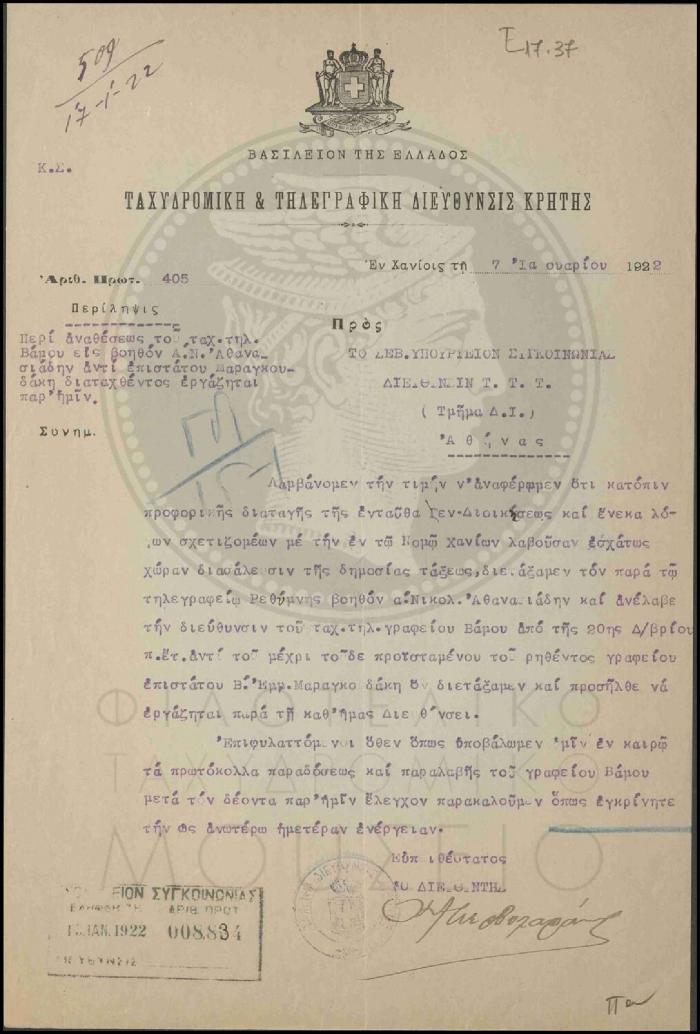 509
17-1-22
E17.37
ΒΑΣΙΛΕΙΟΝ ΤΗΣ ΕΛΛΑΔΟΣ
Κ.Σ.
ΤΑΧΥΔΡΟΜΙΚΗ & ΤΗΛΕΓΡΑΦΙΚΗ ΔΙΕΥΘΥΝΣΙΣ ΚΡΗΤΗΣ
Ἐν Χανίοις τῇ 7 Ἰα ουαρίου 1922
Ἀριθ. Πρωτ. 405
Περίληψις
Περί ἀναθέσεως τοῦ ταχ.τηλ.
Βάμου εἰς βοηθόν Α.Ν.Ἀθανα_
σιάδην ἀντί ἐπιστάτου Μαραγκου_
δάκη διαταχθέντος ἐργάζηται
παρ'ἡμῖν.
Συνημ.
Πρὸς
ΤΟ ΣΕΒ.ΥΠΟΥΡΓΕΙΟΝ ΣΥΓΚΟΙΝΩΝΙΑΣ
ΔΙΕΥΘΥΝΣΙΝ Τ. Τ. Τ.
( Τμῆμα Δ.Ι.)
Ἀ θ ή ν α ς
Λαμβάνομεν τήν τιμήν ν'ἀναφέρωμεν ὅτι κατόπιν
προφορικῆς διαταγῆς τῆς ἐνταῦθα Γεν.Διοικήσεως καί ἕνεκα λό_
γων σχετιζομέων μέ τήν ἐν τῷ Νομῷ Χανίων λαβοῦσαν ἐσχάτως
χώραν διασάλευσιν τῆς δημοσίας τάξεως,διετάξαμεν τόν παρά τῷ
τηλεγραφείῳ Ρεθύμνης βοηθόν α.Νικολ.Ἀθανασιάδην καί ἀνέλαβε
τήν διεύθυνσιν τοῦ ταχ.τηλ.γραφείου Βάμου ἀπό τῆς 20ης Δ/βρίου
π.ἔτ.ἀντί τοῦ μέχρι τοῦδε προϊσταμένου τοῦ ρηθέντος γραφείου
ἐπιστάτου Β.Ἐμμ.Μαραγκο δάκη ὅν διετάξαμεν καί προσῆλθε νά
ἐργάζηται παρά τῇ καθ'ἡμας Διε θύνσει.
Ἐπιφυλαττόμενοι ὅθεν ὅπως ὑποβάλωμεν ὑμῖν ἐν καιρῷ
τά πρωτόκολλα παραδόσεως καί παραλαβῆς τοῦ γραφείου Βάμου
μετά τόν δέοντα παρ'ἡμῖν ἔλεγχον παρακαλοῦμεν ὅπως ἐγκρίνητε
τήν ὡς ἀνωτέρω ἡμετέραν ἐνέργειαν.
Εὐπ ιθέστατος
Ο ΔΙΕΥΘΥΝΤΗΣ
ΕΙΟΝ ΣΥΓΚΟΙΝΩΝΙΑΣ
ΑΡΙΘ. ΠΡΩΤ
ΙΑΝ. 1922 008.834
ΦΙΛΟΤΕΛΙΚΟ
ΤΑΧΥΔΡΟΜΙΚΟ
ΜΟΥΣΕΙΟ